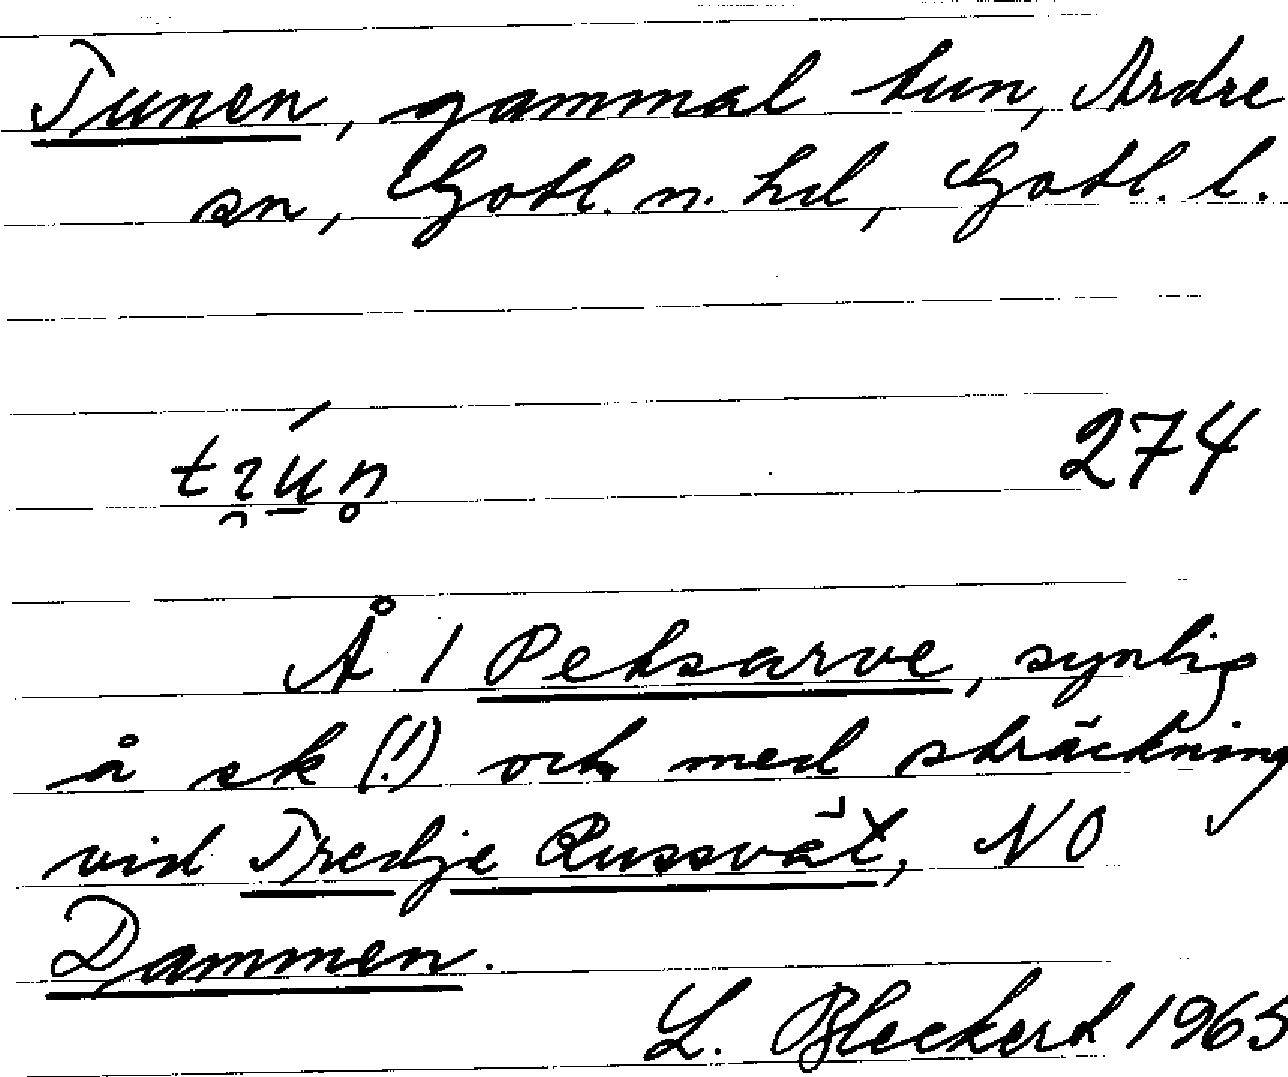 Tunen, gammal tun, Ardre
sn, Gotl. n. hd, Gotl. l.
274
Å 1 Petsarve, synlig
å ek (!) och med sträckning
vid Tredje Russvät, NO
Dammen.
L. Bleckert 1965